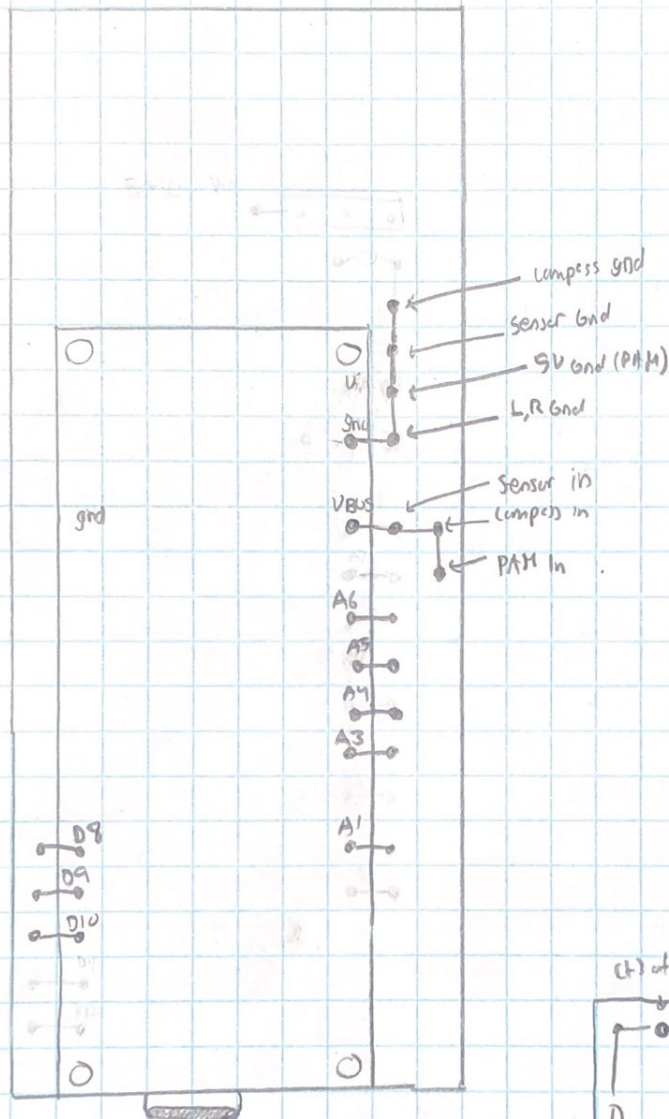 compass gnd
Sensor Gnd
5V Gnd (PAM)
L,R Gnd
Vi
gnd
Sensor in
VBUS
compass in
gnd
PAM In
A6
A5
A4
A3
A1
D8
D9
D10
(+)
D